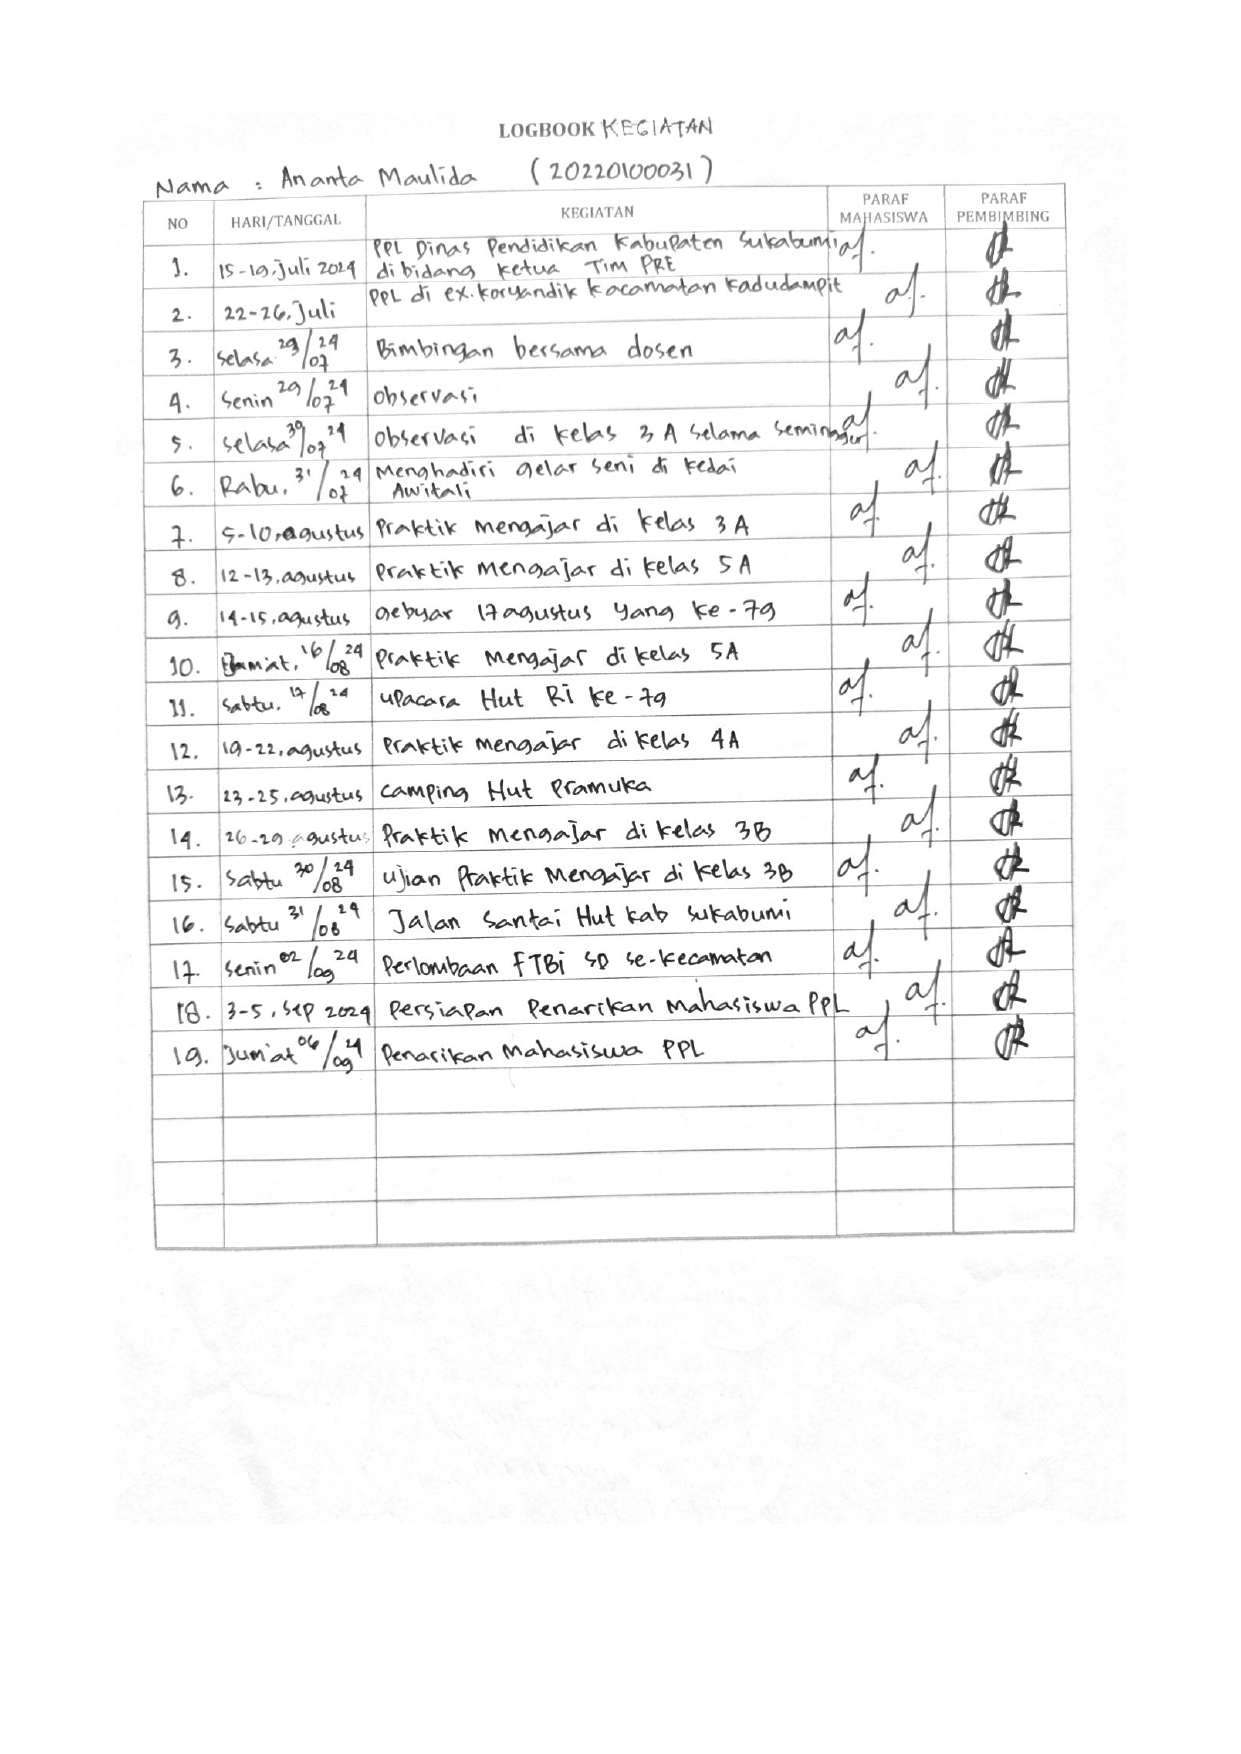 LOGBOOK KEGIATAN
Nama : Ananta Maulida (20220100031)
NO HARI/TANGGAL KEGIATAN PARAF MAHASISWA PARAF PEMBIMBING
1. 15-19, Juli 2024 PPL Dinas Pendidikan Kabupaten Sukabumi af.
di bidang Ketua Tim PRE
2. 22-26, Juli PPL di ex. koryandik kacamatan kadudampit af.
3. Selasa 23/07 24 Bimbingan bersama dosen af.
4. Senin 29/07 24 Observasi af.
5. Selasa 30/07 24 Observasi di kelas 3 A selama seminggu af.
6. Rabu, 31/07 24 Menghadiri gelar seni di kedai af.
Awitali
7. 5-10, agustus Praktik Mengajar di kelas 3 A af.
8. 12-13, agustus Praktik Mengajar di kelas 5 A af.
9. 14-15, agustus gebyar 17 agustus yang ke-79 af.
10. Jum'at, 16/08 24 Praktik Mengajar di kelas 5A af.
11. Sabtu, 17/08 24 upacara Hut Ri ke-79 af.
12. 19-22, agustus Praktik Mengajar di kelas 4A af.
13. 23-25, agustus camping Hut Pramuka af.
14. 26-29 agustus Praktik Mengajar di kelas 3B af.
15. Sabtu 30/08 24 ujian Praktik Mengajar di kelas 3B af.
16. Sabtu 31/08 24 Jalan Santai Hut kab sukabumi af.
17. Senin 02/09 24 Perlombaan FTBI SD se-kecamatan af.
18. 3-5, Sep 2024 Persiapan Penarikan Mahasiswa PPL af.
19. Jum'at 06/09 24 Penarikan Mahasiswa PPL af.